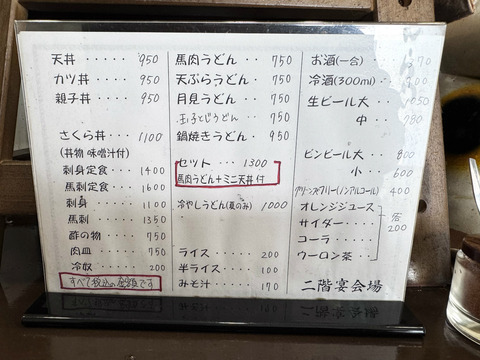 天丼 ····· 950
カツ丼 ···· 950
親子丼 ···· 950
さくら丼 ···· 1100
(丼物 味噌汁付)
刺身定食 ··· 1400
馬刺定食 ··· 1600
刺身 ····· 1100
馬刺 ····· 1350
酢の物 ···· 750
肉皿 ····· 750
冷奴 ····· 200
すべて税込の金額です
馬肉うどん ·· 750
天ぷらうどん · 750
月見うどん ·· 750
玉子とじうどん ·· 750
鍋焼きうどん · 950
セット ··· 1300
馬肉うどん+ミニ天丼付
冷やしうどん(夏のみ) 1000
ライス ··· 200
半ライス ·· 100
みそ汁 ··· 170
お酒(一合)
冷酒(300ml)
生ビール大 ·· 1050
中 ·· 780
ビンビール大 ·· 800
小 ·· 600
グリーンズフリー(ノンアルコール) 400
オレンジジュース
サイダー
コーラ
ウーロン茶
各200
二階宴会場